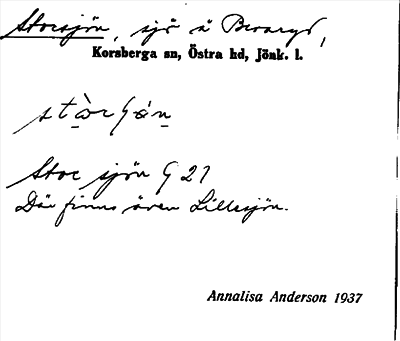 Storsjön, sjö å Berarys,
Korsberga sn, Östra hd, Jönk. l.
Stor sjön G 21
Där finns även Lillesjön.
Annalisa Anderson 1937